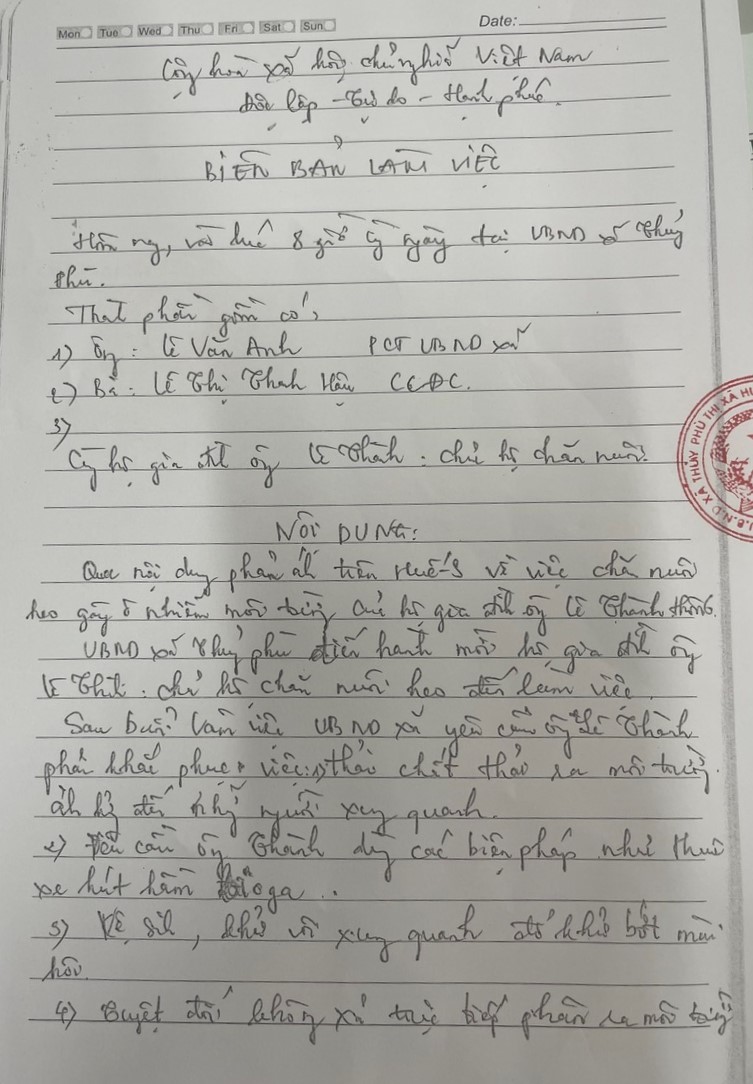 Mon Tue Wed Thu Fri Sat Sun Date:
Cộng hoà xã hội chủ nghĩa Việt Nam
Độc lập - Tự do - Hạnh phúc.
BIÊN BẢN LÀM VIỆC
Hôm nay, vào lúc 8 giờ cùng ngày tại UBND xã Thủy
Phù.
Thành phần gồm có:
1) Ông: Lê Văn Anh PCT UBND xã
2) Bà: Lê Thị Thanh Hậu CCĐC.
3)
Cùng hộ gia đình ông Lê Thành: chủ hộ chăn nuôi.
XÃ THỦY PHÙ THỊ XÃ
NỘI DUNG:
Qua nội dung phản ánh trên Huế-S về việc chăn nuôi
heo gây ô nhiễm môi trường của hộ gia đình ông Lê Thành
UBND xã Thủy Phù tiến hành mời hộ gia đình ông
Lê Thành. chủ hộ chăn nuôi heo đến làm việc.
Sau buổi làm việc UBND xã yêu cầu ông Lê Thành
phải khắc phục việc: 1) thải chất thải ra môi trường
ảnh hưởng đến những người xung quanh.
2) Yêu cầu ông Thành dùng các biện pháp như thuê
xe hút hầm Bioga..
3) Vệ sinh, khử xung quanh để khử bớt mùi
hôi.
4) Tuyệt đối không xả trực tiếp phân ra môi trường